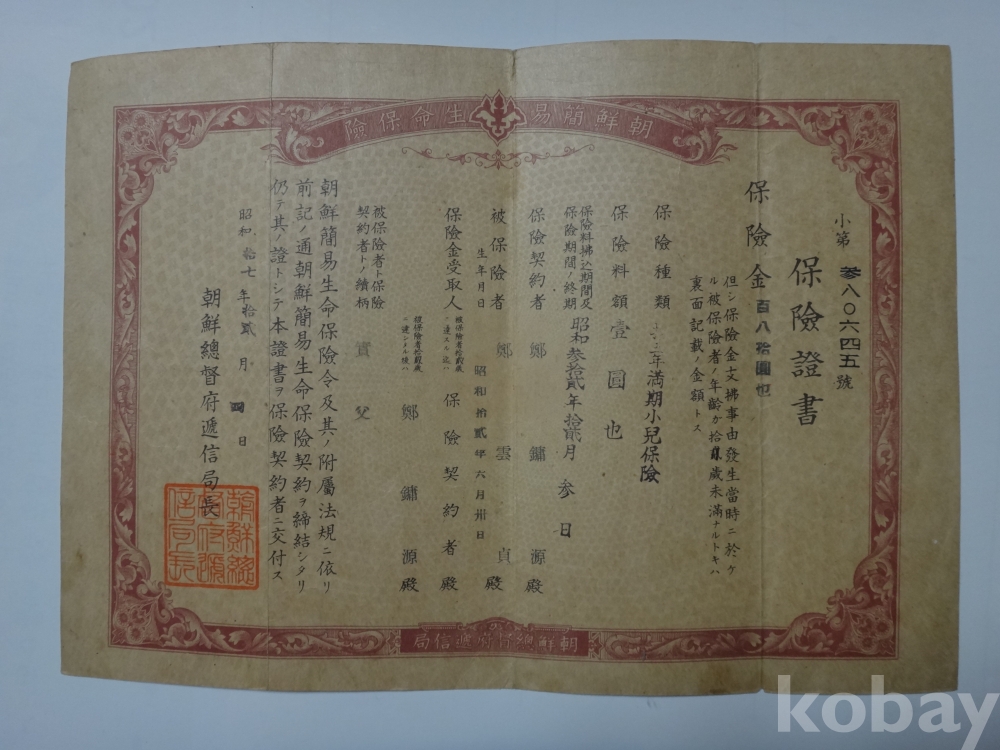 朝鮮簡易生命保險
小第 參八〇六四五號
保險證書
保險金 百八拾圓也
但シ保險金支拂事由發生當時ニ於ケ
ル被保險者ノ年齡ガ拾貳歲未滿ナルトキハ
裏面記載ノ金額トス
保險種類 年滿期小兒保險
保險料額 壹圓也
保險料拂込期間及
保險期間ノ終期 昭和參拾貳年拾貳月參日
保險契約者 鄭鏞源殿
被保險者 鄭雲貞殿
生年月日 昭和拾貳年六月卅日
保險金受取人
被保險者拾貳歲
ニ達スル迄ハ 保險契約者殿
被保險者拾貳歲
ニ達シタル後ハ 鄭鏞源殿
被保險者ト保險
契約者トノ續柄 實父
朝鮮簡易生命保險令及其ノ附屬法規ニ依リ
前記ノ通朝鮮簡易生命保險契約ヲ締結シタリ
仍テ其ノ證トシテ本證書ヲ保險契約者ニ交付ス
昭和拾七年拾貳月四日
朝鮮總督府遞信局長
朝鮮總督府遞信局長
朝鮮總督府遞信局
kobay